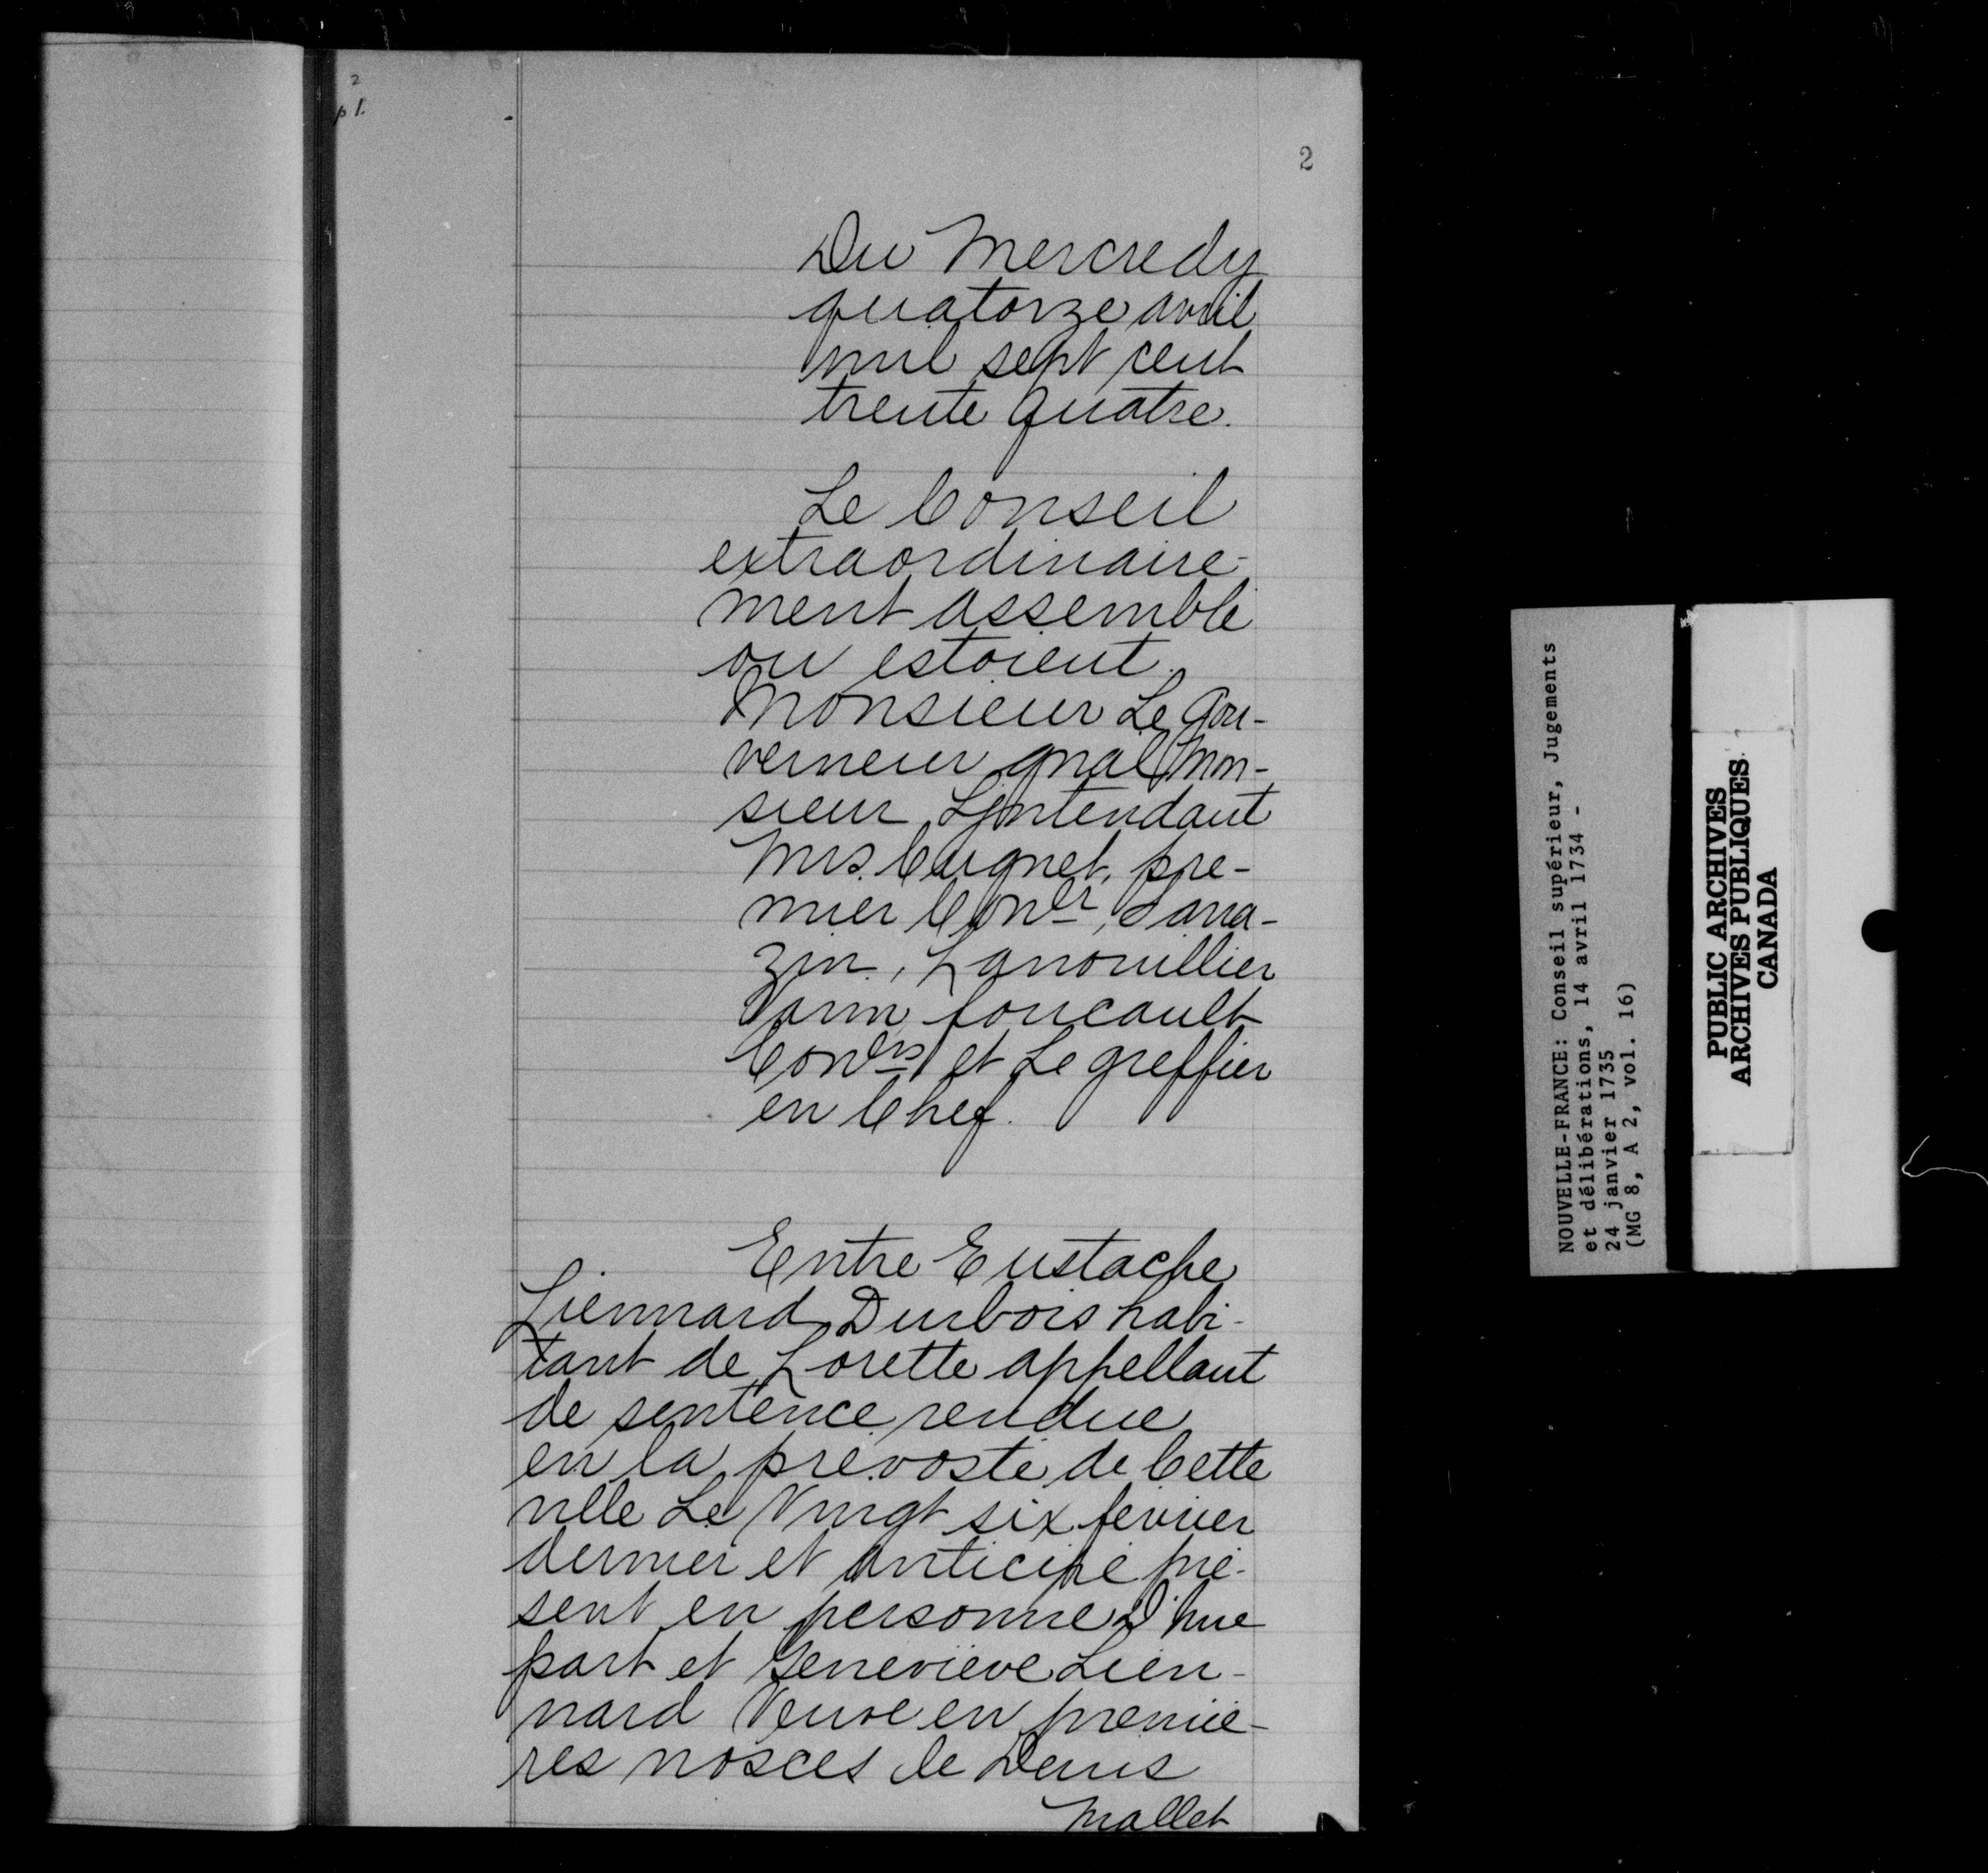 2
p 1.
2
Du Mercredy
quatorze avril
mil sept cent
trente quatre.
Le Conseil
extraordinaire-
ment assemblé
ou estoient
Monsieur Le Gou-
verneur gnal Mon-
sieur Lintendant
Mrs. Cugnet, pre-
mier Coner, Sarra-
zin, Lanouillier
Varin foucault
Coners et Le greffier
en Chef.
Entre Eustache
Liennard Durbois habi-
tant de Lorette appellant
de sentence rendue
en la prevosté de Cette
ville Le Vingt six fevrier
dernier et anticipé pré-
sent en personne D'une
part et Genevieve Lien-
nard Veuve en premie-
res nosces de Denis
Mallet
NOUVELLE-FRANCE: Conseil supérieur, Jugements
et délibérations, 14 avril 1734 -
24 janvier 1735
(MG 8, A 2, vol. 16)
PUBLIC ARCHIVES
ARCHIVES PUBLIQUES
CANADA